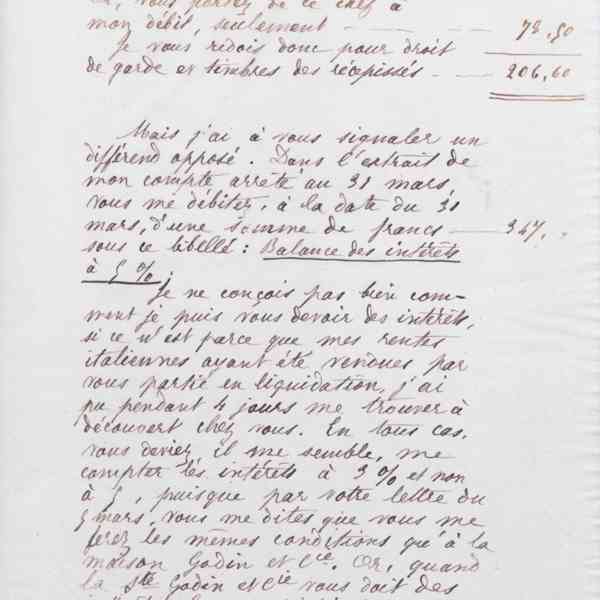 vous portez de ce chef à
mon débit, seulement 78,50
Je vous redois donc pour droit
de garde et timbres des récépissés 206,60
Mais j'ai à vous signaler un
différend opposé. Dans l'extrait de
mon compte arrêté au 31 mars,
vous me débitez, à la date du 31
mars, d'une somme de francs 347.
sous ce libellé : Balance des intérêts
à 5 %.
Je ne conçois pas bien com-
ment je puis vous devoir des intérêts,
si ce n'est parce que mes rentes
italiennes ayant été vendues par
vous partie en liquidation, j'ai
pu pendant 4 jours me trouver à
découvert chez vous. En tous cas,
vous deviez, il me semble, me
compter les intérêts à 3 % et non
à 5, puisque par votre lettre du
5 mars, vous me dites que vous me
ferez les mêmes conditions qu'à la
maison Godin et Cie. Or, quand
la Sté Godin et Cie vous doit des